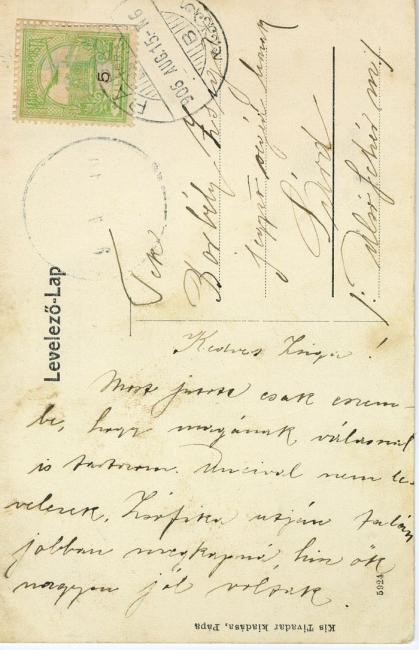 5
906 AUG. 15
Levelező-Lap
Tek.
Borbély
jegyző
Lárd
u. p. Alsófehér m.
Kedves Zsiga!
Most jutott csak eszem-
be, hogy magának válaszal
is tartozom. Uncival nem le-
velezek. Zsófika utján talán
jobban megkapná, hisz ők
nagyon jól voltak.
5924
Kis Tivadar kiadása, Pápa